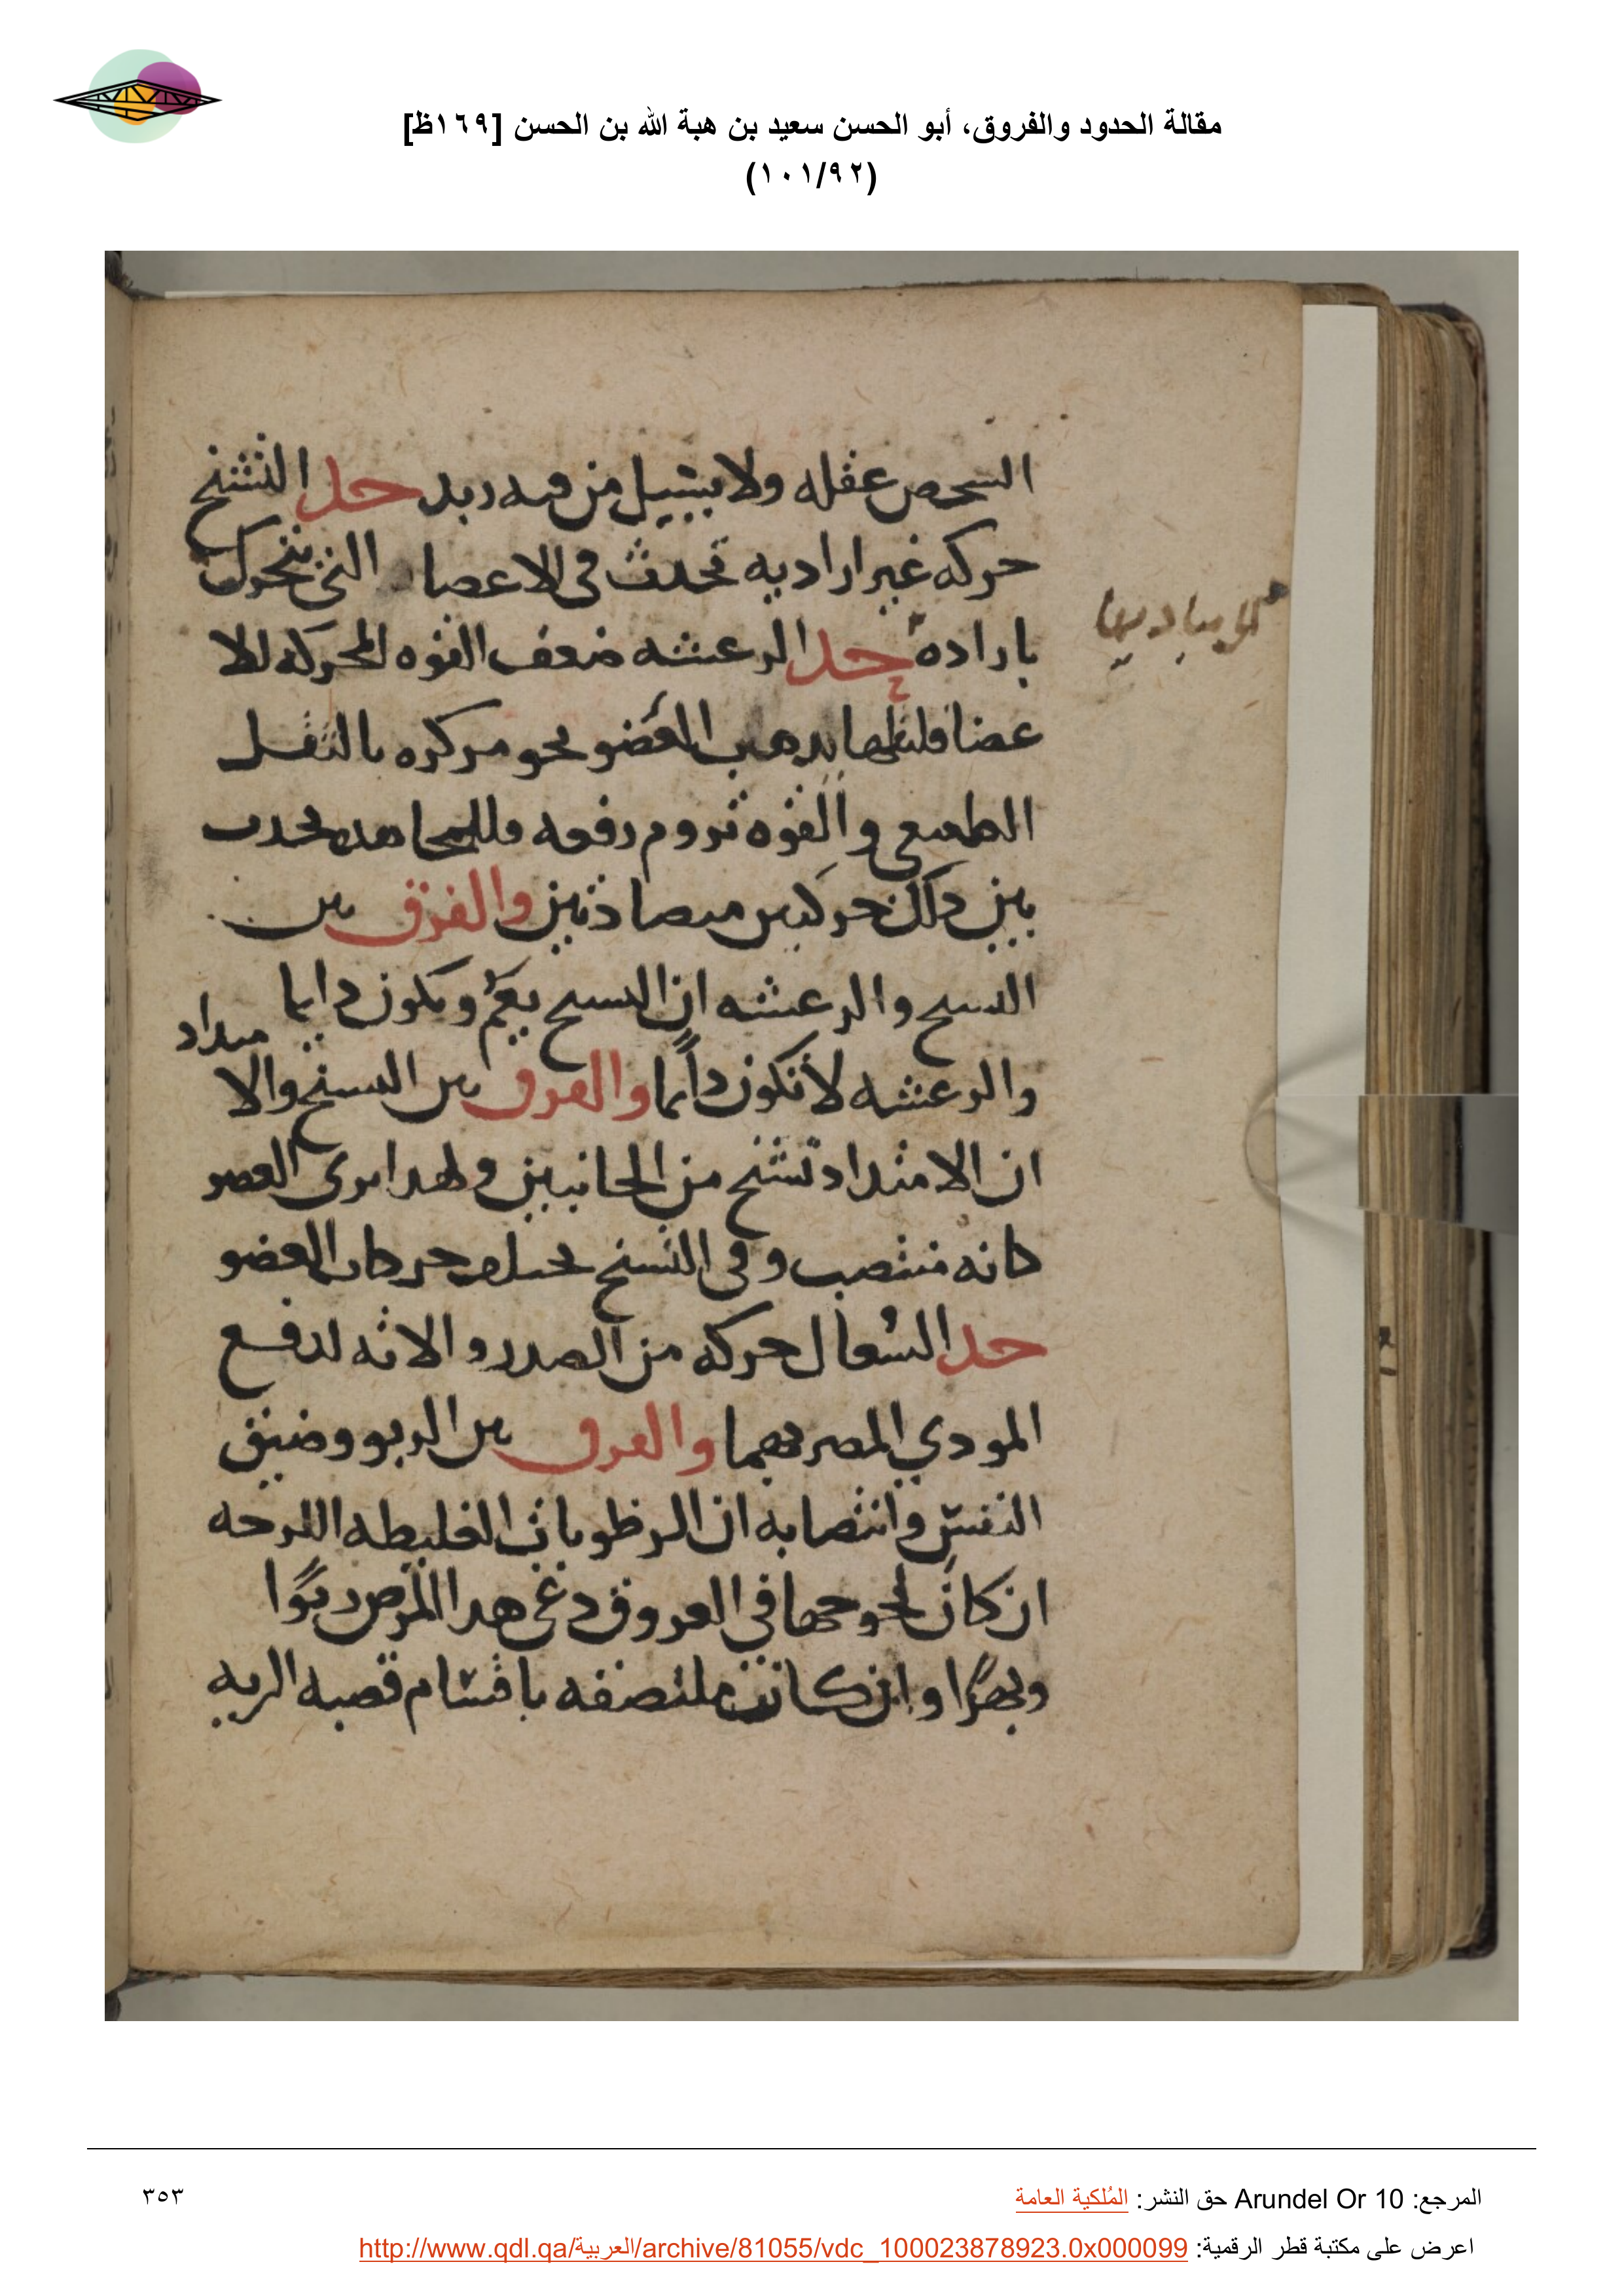 مقالة الحدود والفروق، أبو الحسن سعيد بن هبة الله بن الحسن [١٦٩ظ]
(١٠١/٩٢)
السحص عقله ولا يسيل من فيه زبد حد التشنج
حركه غير اراديه تحدث في الاعضا التي تتحرك
باراده حد الرعشه ضعف القوه المحركه للا
عضا يدهب العضو نحو مركزه بالثقل
الطبيعي والقوه تروم رفعه يحدث
بين ذلك حركتين متضادتين والفرق بين
التشنج والرعشه ان التشنج يعم ويكون دايما
والرعشه لا تكون دائما والفرق بين التشنج والا
متداد
ان الامتداد تشنج من الجانبين ولهذا يرى العضو
كانه منتصب وفي التشنج تختلف حركات العضو
حد السعال حركه من الصدر والاته لدفع
المودي المضر بهما والفرق بين الربو وضيق
النفس وانتصابه ان الرطوبات الغليظه اللزجه
ان كان لحوجها في العروق دعي هدا المرض ربوا
وبهرا وان كانت ملتصقه باقسام قصبه الريه
المرجع: Arundel Or 10 حق النشر: المُلكية العامة
٣٥٣
اعرض على مكتبة قطر الرقمية: http://www.qdl.qa/العربية/archive/81055/vdc_100023878923.0x000099